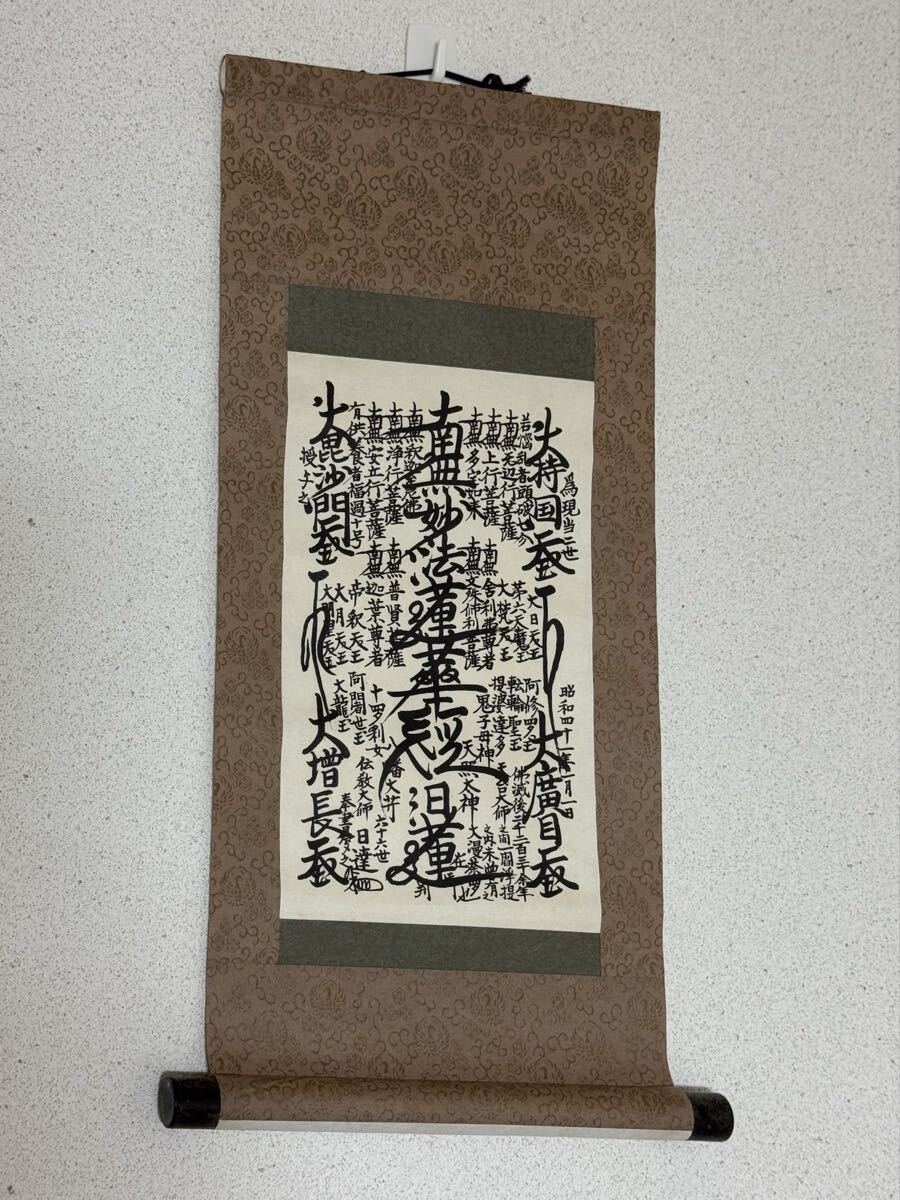 為現当二世
昭和四十一年一月一日
大持国天
大廣目天
若悩乱者頭破七分
南無无辺行菩薩
南無上行菩薩
南無多宝如来
大日天王
第六天魔王
大梵天王
南無舎利弗尊者
南無文殊師利菩薩
阿修羅王
転輪聖王
提婆達多
鬼子母神
天照太神
天台大師
佛滅後二千二百三十余年
之間一閻浮提
之内未曽有之
大漫荼羅也
南無妙法蓮華経
日蓮
在御判
南無釈迦牟尼佛
南無浄行菩薩
南無安立行菩薩
有供養者福過十号
南無普賢菩薩
南無迦葉尊者
帝釈天王
大月天王
大明星天王
十羅刹女
阿闍世王
大龍王
八幡大菩薩
伝教大師
六十六世
日達
奉書寫之
大毘沙門天
大増長天
授与之